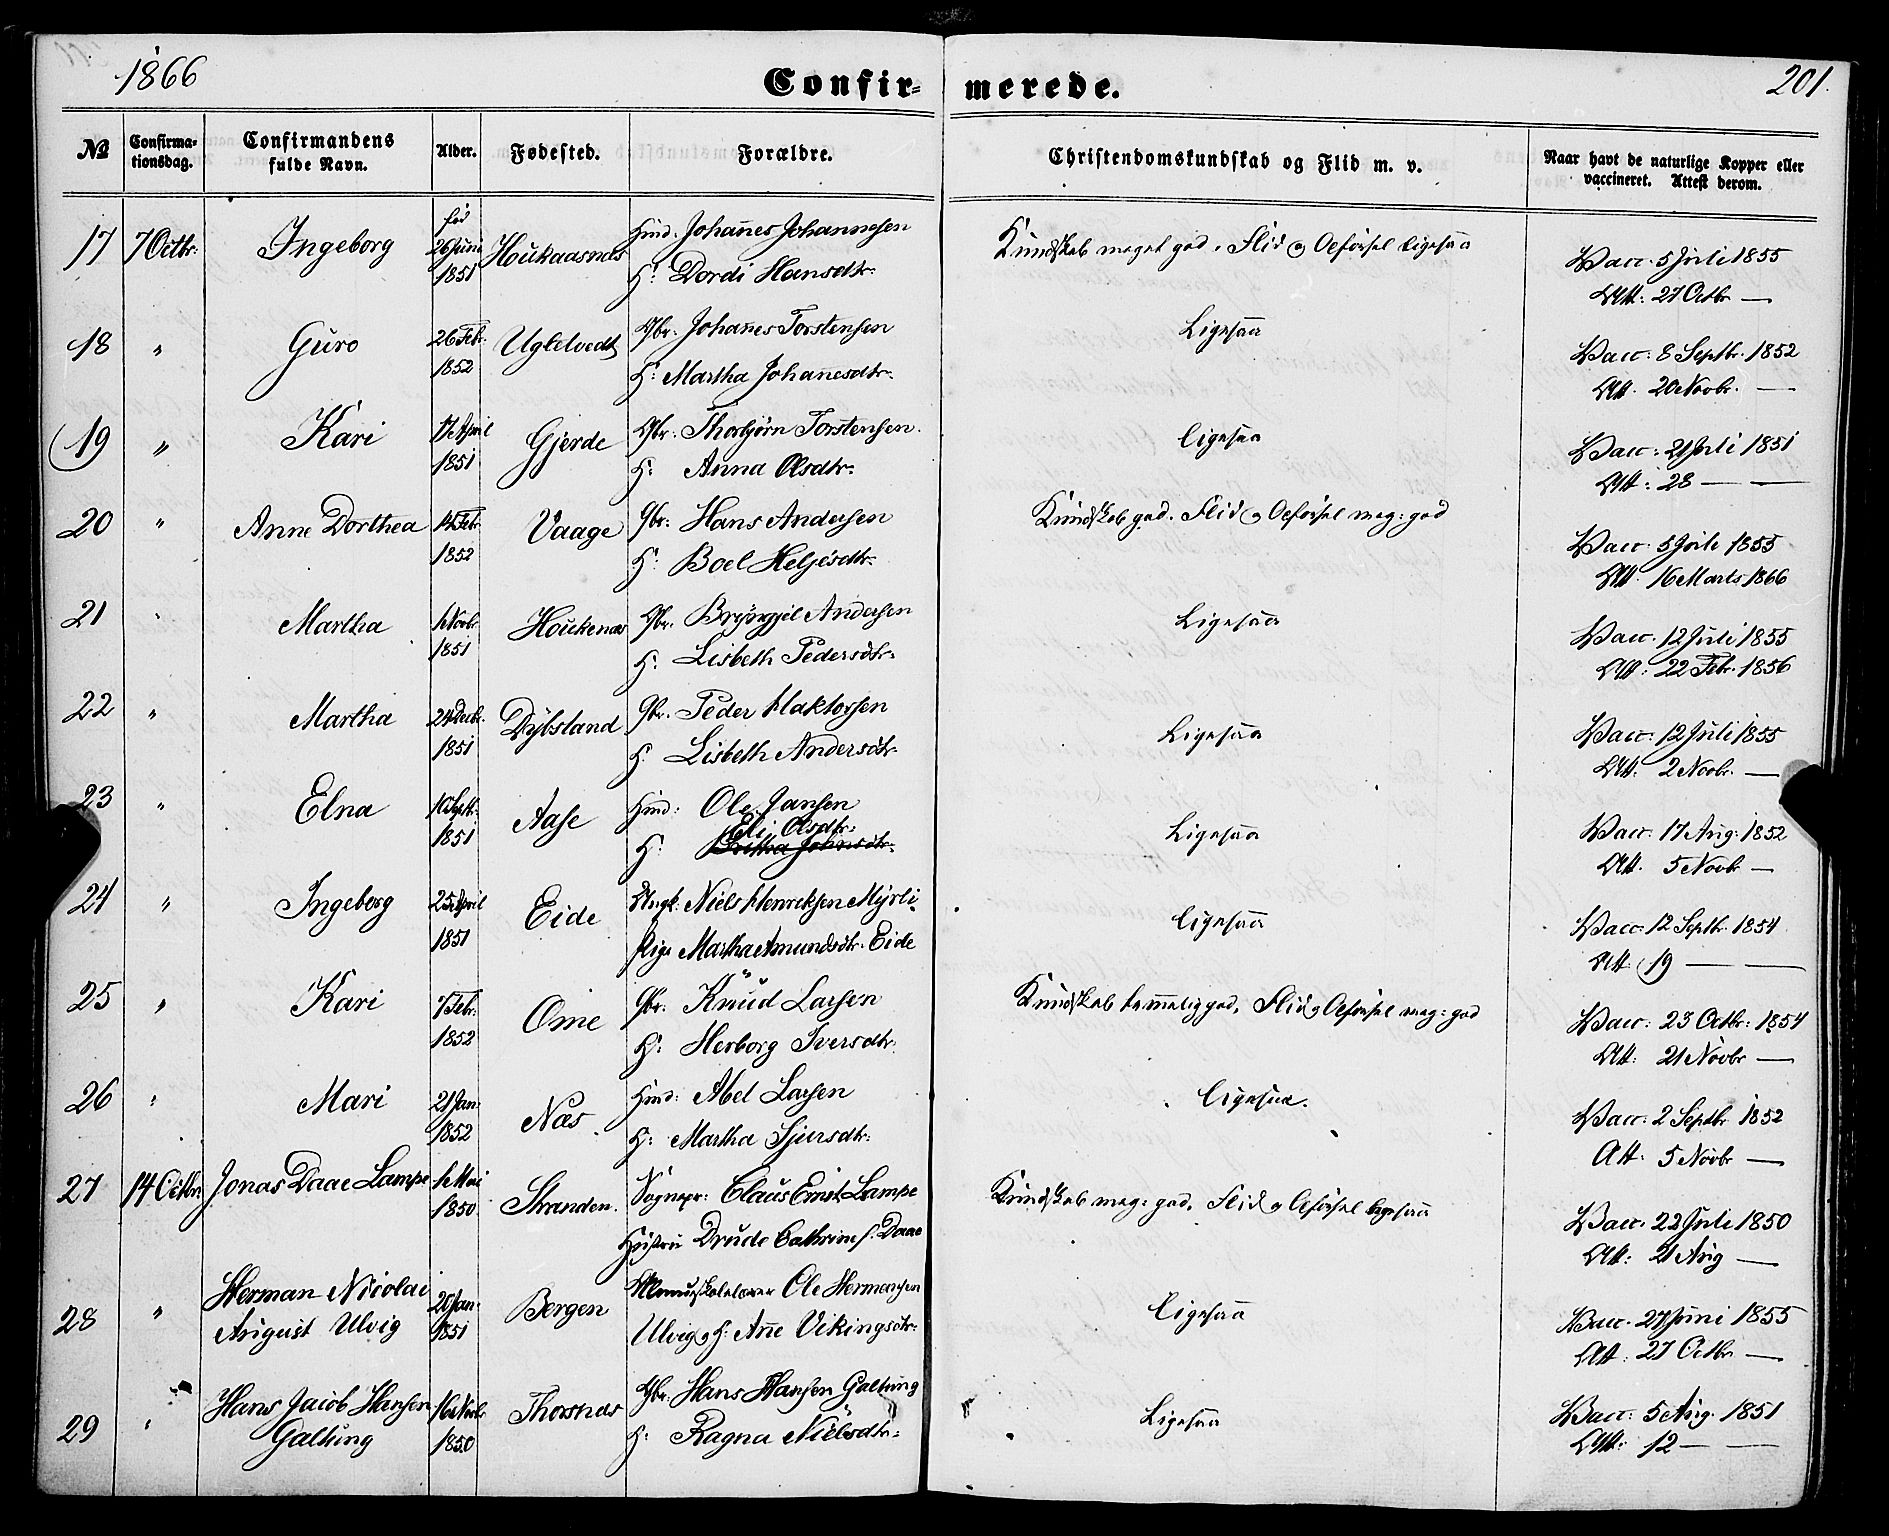 1866 Confirmerede. 201.
№ Confirmationsdag. Confirmandens fulde Navn. Alder. Fødested. Forældre. Christendomskundskab og Flid m. v. Naar havt de naturlige Kopper eller vaccineret. Attest derom.
17 7 Octbr: Ingeborg fød 26 Juni 1851 Houkaasnæs Huusmd. Johanes Johannesen Kundskab meget god, Flid og Opførsel ligesaa Vacc. 5 Juli 1855
H: Dordi Hansdtr. Att: 27 Octbr —
18 " Guro 26 Febr. 1852 Uglelvedt Gbr. Johanes Torstensen Ligesaa Vacc: 8 Septbr. 1852
H: Martha Johanesdtr. Att. 20 Novbr. —
19 " Kari 17 April 1851 Gjerde Gbr. Thorbjørn Torstensen. ligesaa Vacc: 21 Juli 1851
H: Anna Olsdtr. Att: 28 — —
20 " Anne Dorthea 14 Febr 1852 Vaage Gbr: Hans Andersen Kundskab god. Flid og Opførsel meg: god Vacc. 5 Juli 1855
H: Boel Heljesdtr. Att. 16 Marts 1866
21 " Martha 1 Novbr 1851 Houkenæs Gbr. Brynjel Andersen Ligesaa Vacc. 12 Juli 1855
H: Lisbeth Pedersdtr. Att: 22 Febr. 1856
22 " Martha 24 Decbr. 1851 Dybsland Gbr. Peder Haktorsen Ligesaa Vacc: 12 Juli 1855
H. Lisbeth Andersdtr. Att: 2 Novbr. —
23 " Elna 10 Septbr. 1851 Aase Huusmd: Ole Jansen Ligesaa Vacc: 17 Aug: 1852
Eli Olsdtr.
H: Att. 5 Novbr —
24 " Ingeborg 25 April 1851 Eide Ungk: Niels Henreksen Myrli ligesaa Vacc. 12 Septbr. 1854
Pige Martha Amundsdtr. Eide Att. 19 — —
25 " Kari 7 Febr. 1852 Ome Gbr. Knud Larsen Kundskab temmelig god, Flid og Opførsel meg: god Vacc: 23 Octbr: 1854
H: Herborg Iversdtr. Att: 21 Novbr —
26 " Mari 21 Jan. 1852 Næs Huusmd: Abel Larsen ligesaa. Vacc: 2 Septbr 1852
H: Martha Sjursdtr. Att: 5 Novbr —
27 14 Octbr Jonas Daae Lampe 1 Mai 1850 Stranden. Sognepr: Claus Ernst Lampe Kundskab meg: god. Flid og Opførsel ligesaa Vacc. 22 Juli 1850
Hustru Drude Cathrine f. Daae Att: 21 Aug —
28 " Herman Nicolai August Ulvig 20 Jan. 1851 Bergen Ole Hermansen Ligesaa Vacc. 27 Juni 1855
Ulvig og H: Ane Vikingsdtr. Att: 27 Octbr —
29 " Hans Jacob Hansen Galtung 16 Novbr 1850 Thorsnæs Gbr: Hans Hansen Galtung Ligesaa Vacc: 5 Aug. 1851
H: Ragna Nielsdtr. Att: 12 — —